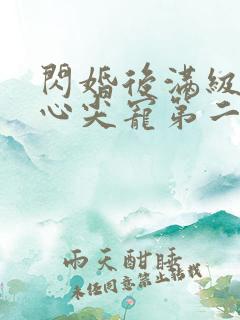 閃婚後滿級
心尖寵第二
雨天酣睡
未經同意禁止轉載